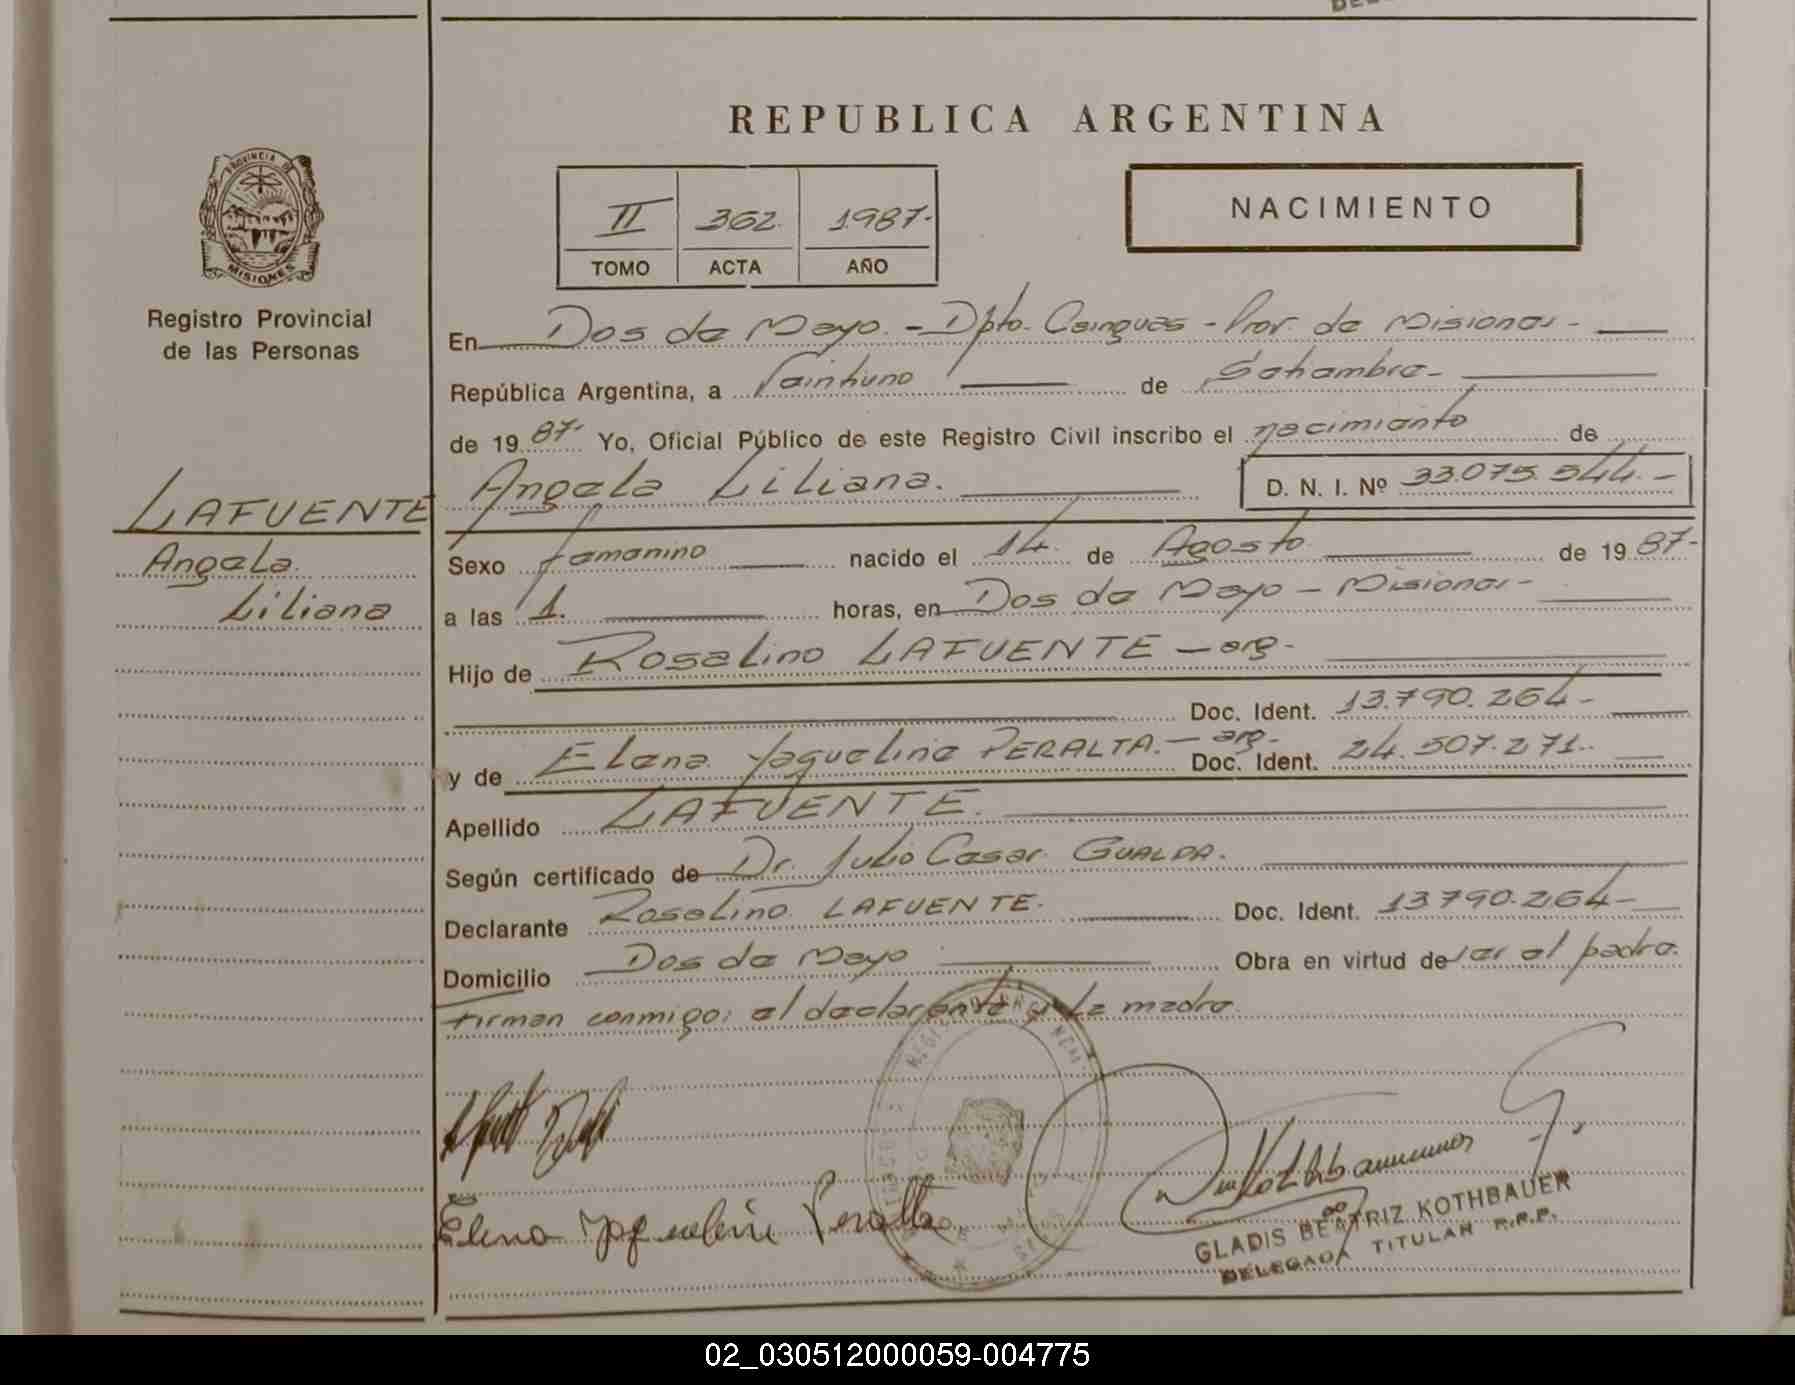 REPUBLICA ARGENTINA
PROVINCIA DE
MISIONES
Registro Provincial
de las Personas
II 362 1987.-
TOMO ACTA AÑO
NACIMIENTO
En Dos de Mayo.- Dpto. Cainguas - Prov. de Misiones -
República Argentina, a Veintiuno de Setiembre -
de 19 87.- Yo, Oficial Público de este Registro Civil inscribo el nacimiento de
Angela Liliana. D. N. I. Nº 33.075.544.-
LAFUENTE
Angela
Liliana
Sexo femenino nacido el 14. de Agosto de 19 87-
a las 1. horas, en Dos de Mayo - Misiones -
Hijo de Rosalino LAFUENTE - arg-
Doc. Ident. 13.790.264 -
y de Elena Yaqueline PERALTA.- arg- Doc. Ident. 24.507.271.
Apellido LAFUENTE.
Según certificado de Dr. Julio Cesar GUALDA.
Declarante Rosalino LAFUENTE. Doc. Ident. 13790.264-
Domicilio Dos de Mayo Obra en virtud de ser el padre.
Firman conmigo: el declarante y la madre.
Elena Yaqueline Peralta
GLADIS BEATRIZ KOTHBAUER
DELEGADA TITULAR R.P.P.
02_030512000059-004775